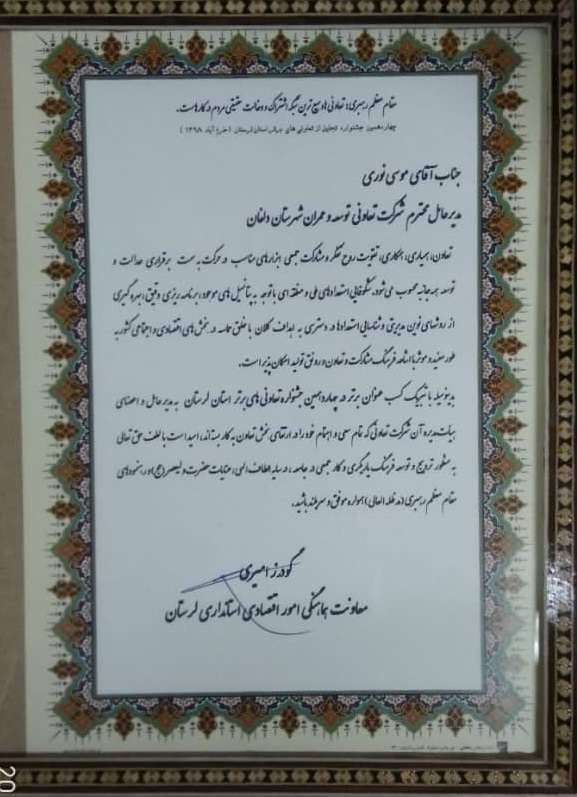 مقام معظم رهبری: تعاونی ها وسیع ترین شبکه اشتراک و دخالت حقیقی مردم در کارهاست.
چهاردهمین جشنواره تجلیل از تعاونی های برتر استان لرستان (خرم آباد ۱۳۹۸)
جناب آقای موسی نوری
مدیرعامل محترم شرکت تعاونی توسعه و عمران شهرستان دلفان
تعاون، همیاری، همکاری، تقویت روح تفکر و مشارکت جمعی ابزارهای مناسب در حرکت به سمت برقراری عدالت و
توسعه همه جانبه محسوب می شود، شکوفایی استعدادهای ملی و منطقه ای با توجه به پتانسیل های موجود، برنامه ریزی دقیق، بهره گیری
از روشهای نوین مدیریتی و شناسایی استعدادها در دستیابی به اهداف کلان با خلق حماسه در بخش های اقتصادی و اجتماعی کشور به
طور مفید و موثر با اشاعه فرهنگ مشارکت و تعاون در رونق تولید امکان پذیر است.
بدینوسیله با تبریک کسب عنوان برتر در چهاردهمین جشنواره تعاونی های برتر استان لرستان به مدیرعامل و اعضای
هیات مدیره آن شرکت تعاونی که تمام سعی و اهتمام خود را در ارتقای بخش تعاون به کار بسته اند، امید است با لطف حق تعالی
به منظور ترویج و توسعه فرهنگ یاریگری و کار جمعی در جامعه، در سایه الطاف الهی، عنایات حضرت ولیعصر (عج) و رهنمودهای
مقام معظم رهبری (مدظله العالی) همواره موفق و سربلند باشید.
گودرز امیری
معاونت هماهنگی امور اقتصادی استانداری لرستان
20